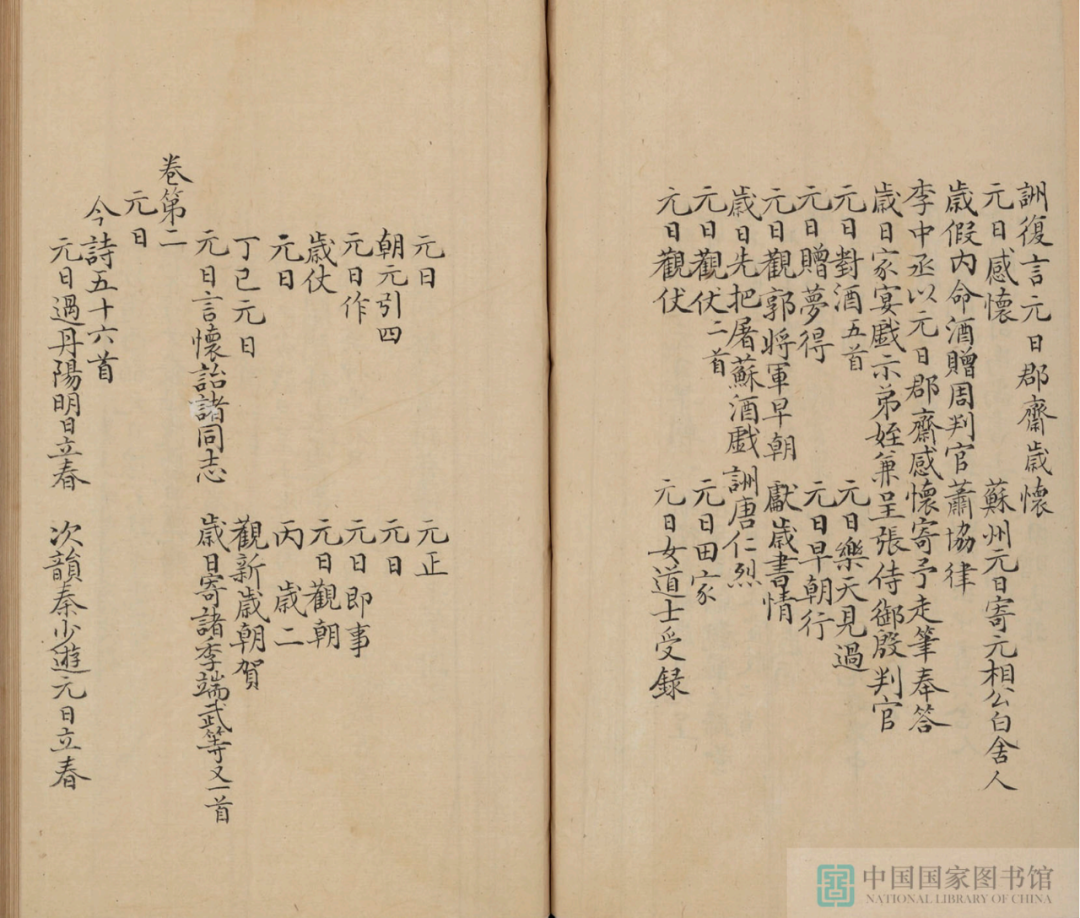 詶復言元日郡齋歲懷
元日感懷　蘇州元日寄元相公白舍人
歲假內命酒贈周判官蕭協律
李中丞以元日郡齋感懷寄予走筆奉答
歲日家宴戲示弟姪兼呈張侍御殷判官
元日對酒五首　元日樂天見過
元日贈夢得　元日早朝行
元日觀郭將軍早朝　獻歲書情
歲日先把屠蘇酒戲詶唐仁烈
元日觀伏二首　元日田家
元日觀伏　元日女道士受録
元日　元正
朝元引四　元日
元日作　元日即事
歲仗　元日觀朝
元日　丙歲二
丁巳元日　觀新歲朝賀
元日言懷詒諸同志　歲日寄諸李端武等又一首
卷第二
元日
今詩五十六首
元日過丹陽明日立春　次韻秦少遊元日立春
中国国家图书馆
NATIONAL LIBRARY OF CHINA